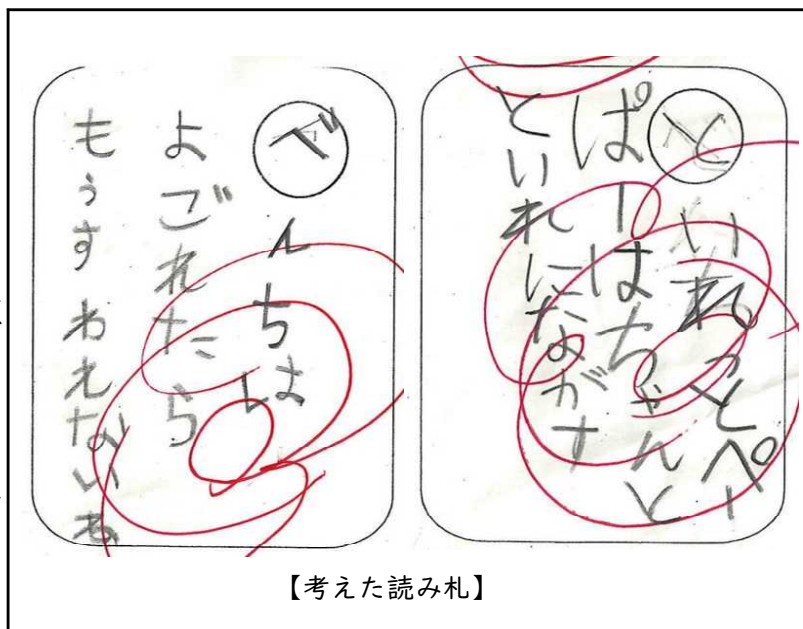 といれっとぺー
ぱーはちゃんと
といれにながす
べんちは
よごれたら
もうすわえないね
【考えた読み札】